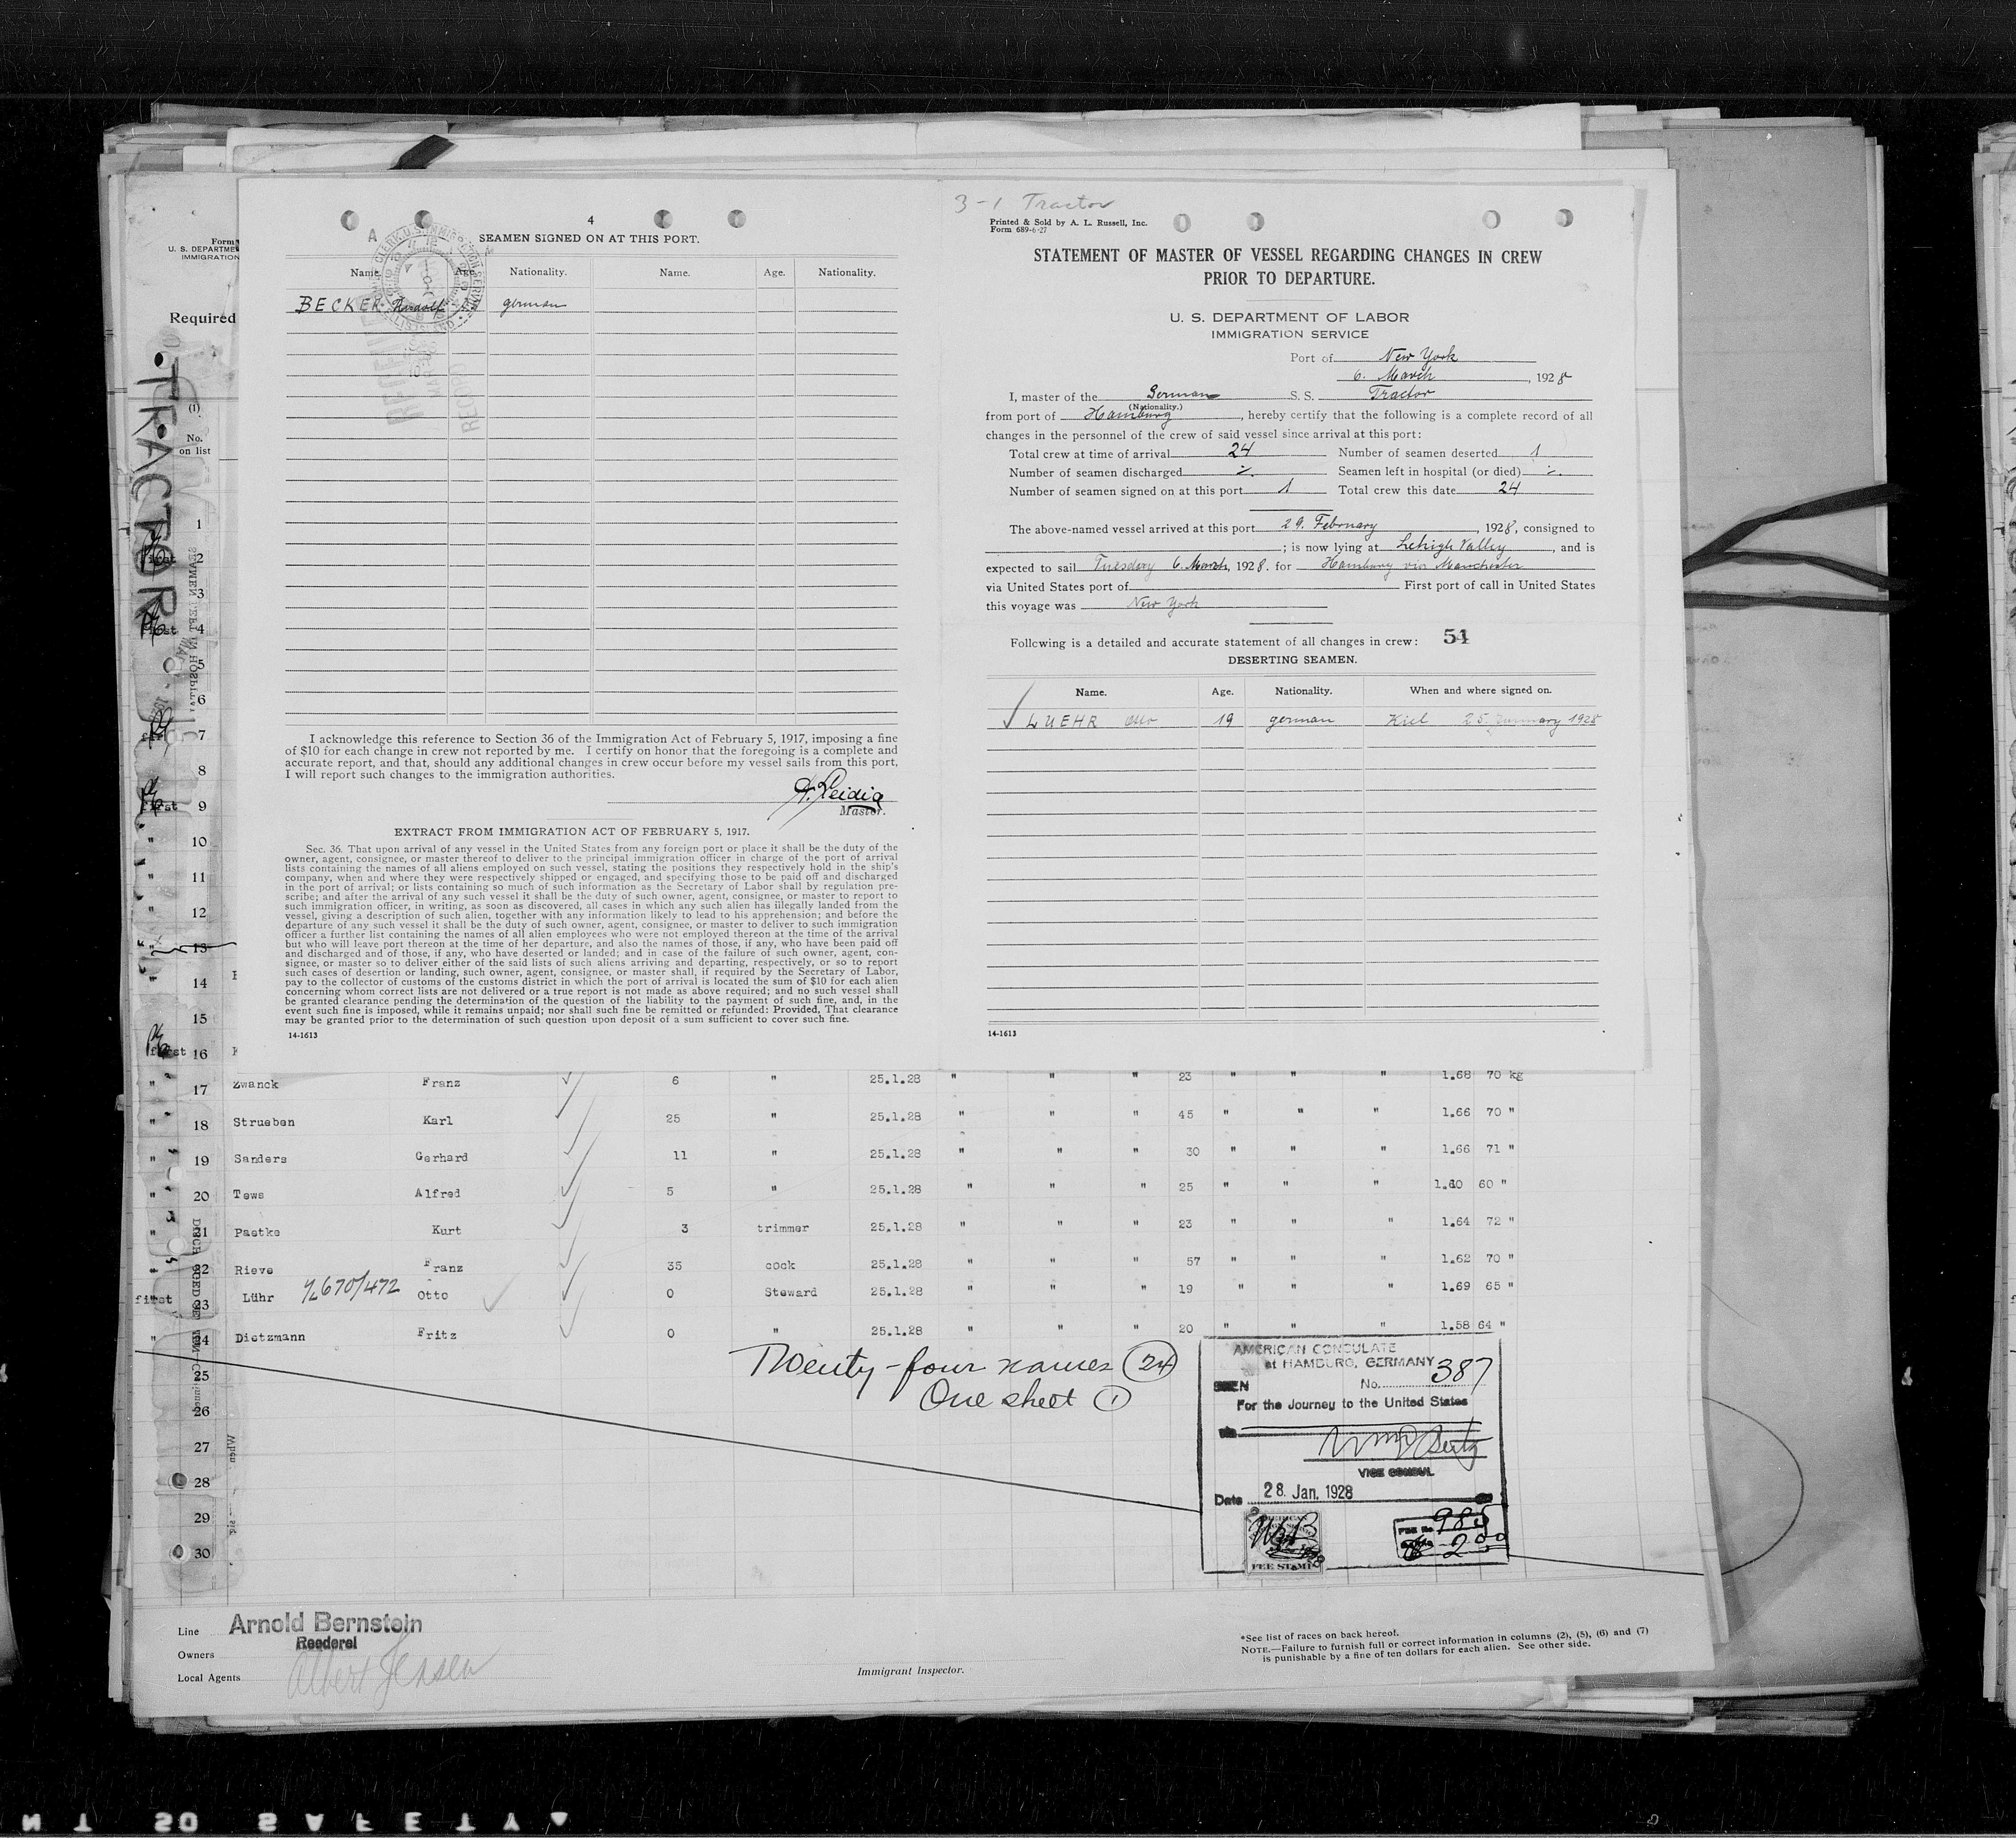 4
SEAMEN SIGNED ON AT THIS PORT.
Name. Age. Nationality. Name. Age. Nationality.
BECKER Rudolf german
I acknowledge this reference to Section 36 of the Immigration Act of February 5, 1917, imposing a fine
of $10 for each change in crew not reported by me. I certify on honor that the foregoing is a complete and
accurate report, and that, should any additional changes in crew occur before my vessel sails from this port,
I will report such changes to the immigration authorities.
Master.
EXTRACT FROM IMMIGRATION ACT OF FEBRUARY 5, 1917.
Sec. 36. That upon arrival of any vessel in the United States from any foreign port or place it shall be the duty of the
owner, agent, consignee, or master thereof to deliver to the principal immigration officer in charge of the port of arrival
lists containing the names of all aliens employed on such vessel, stating the positions they respectively hold in the ship's
company, when and where they were respectively shipped or engaged, and specifying those to be paid off and discharged
in the port of arrival; or lists containing so much of such information as the Secretary of Labor shall by regulation pre-
scribe; and after the arrival of any such vessel it shall be the duty of such owner, agent, consignee, or master to report to
such immigration officer, in writing, as soon as discovered, all cases in which any such alien has illegally landed from the
vessel, giving a description of such alien, together with any information likely to lead to his apprehension; and before the
departure of any such vessel it shall be the duty of such owner, agent, consignee, or master to deliver to such immigration
officer a further list containing the names of all alien employees who were not employed thereon at the time of the arrival
but who will leave port thereon at the time of her departure, and also the names of those, if any, who have been paid off
and discharged and of those, if any, who have deserted or landed; and in case of the failure of such owner, agent, con-
signee, or master so to deliver either of the said lists of such aliens arriving and departing, respectively, or so to report
such cases of desertion or landing, such owner, agent, consignee, or master shall, if required by the Secretary of Labor,
pay to the collector of customs of the customs district in which the port of arrival is located the sum of $10 for each alien
concerning whom correct lists are not delivered or a true report is not made as above required; and no such vessel shall
be granted clearance pending the determination of the question of the liability to the payment of such fine, and, in the
event such fine is imposed, while it remains unpaid; nor shall such fine be remitted or refunded: Provided, That clearance
may be granted prior to the determination of such question upon deposit of a sum sufficient to cover such fine.
14-1613
3-1 Tractor
Printed & Sold by A. L. Russell, Inc.
Form 689-6-27
STATEMENT OF MASTER OF VESSEL REGARDING CHANGES IN CREW
PRIOR TO DEPARTURE.
U. S. DEPARTMENT OF LABOR
IMMIGRATION SERVICE
Port of New York
6. March, 1928
I, master of the German S. S. Tractor
(Nationality.)
from port of Hamburg, hereby certify that the following is a complete record of all
changes in the personnel of the crew of said vessel since arrival at this port:
Total crew at time of arrival 24 Number of seamen deserted 1
Number of seamen discharged ÷ Seamen left in hospital (or died) ÷
Number of seamen signed on at this port 1 Total crew this date 24
The above-named vessel arrived at this port 29. February, 1928, consigned to
; is now lying at Lehigh Valley, and is
expected to sail Tuesday 6. March, 1928. for Hamburg via Manchester
via United States port of First port of call in United States
this voyage was New York
Following is a detailed and accurate statement of all changes in crew: 54
DESERTING SEAMEN.
Name. Age. Nationality. When and where signed on.
LUEHR Otto 19 german Kiel 25. January 1928
14-1613
Form
U. S. DEPARTME
IMMIGRATION
Required
TRACTOR
(1)
No.
on list
1
first 2
3
first 4
5
6
7
8
first 9
" 10
" 11
" 12
" 13
" 14
15
first 16
" 17 Zwanck Franz 6 " 25.1.28 " " " 23 " " " 1.68 70 kg
" 18 Strueben Karl 25 " 25.1.28 " " " 45 " " " 1.66 70 "
" 19 Sanders Gerhard 11 " 25.1.28 " " " 30 " " " 1.66 71 "
" 20 Tews Alfred 5 " 25.1.28 " " " 25 " " " 1.60 60 "
" 21 Paetke Kurt 3 trimmer 25.1.28 " " " 23 " " " 1.64 72 "
" 22 Rieve Franz 35 cock 25.1.28 " " " 57 " " " 1.62 70 "
first 23 Lühr 670/472 Otto 0 Steward 25.1.28 " " " 19 " " " 1.69 65 "
" 24 Dietzmann Fritz 0 " 25.1.28 " " " 20 " " " 1.58 64 "
25
26
27
28
29
30
Twenty-four names (24)
One sheet (1)
AMERICAN CONSULATE
at HAMBURG, GERMANY
SEEN No. 387
For the Journey to the United States
via
VICE CONSUL
Date 28. Jan. 1928
FEE STAMP
Fee No. 985
2.00
Line Arnold Bernstein
Reederei
Owners
Local Agents Albert Jensen
Immigrant Inspector.
*See list of races on back hereof.
NOTE.—Failure to furnish full or correct information in columns (2), (5), (6) and (7)
is punishable by a fine of ten dollars for each alien. See other side.
SAFETY